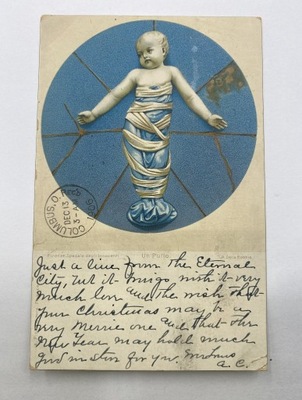 COLUMBUS, O. REC'D
DEC 13
3-AM
1906
Un Putto
Just a line from the Eternal
City, but it brings with it very
much love and the wish that
your Christmas may be a
very Merrie one and that the
New Year may hold much
good in store for you.
A. C.